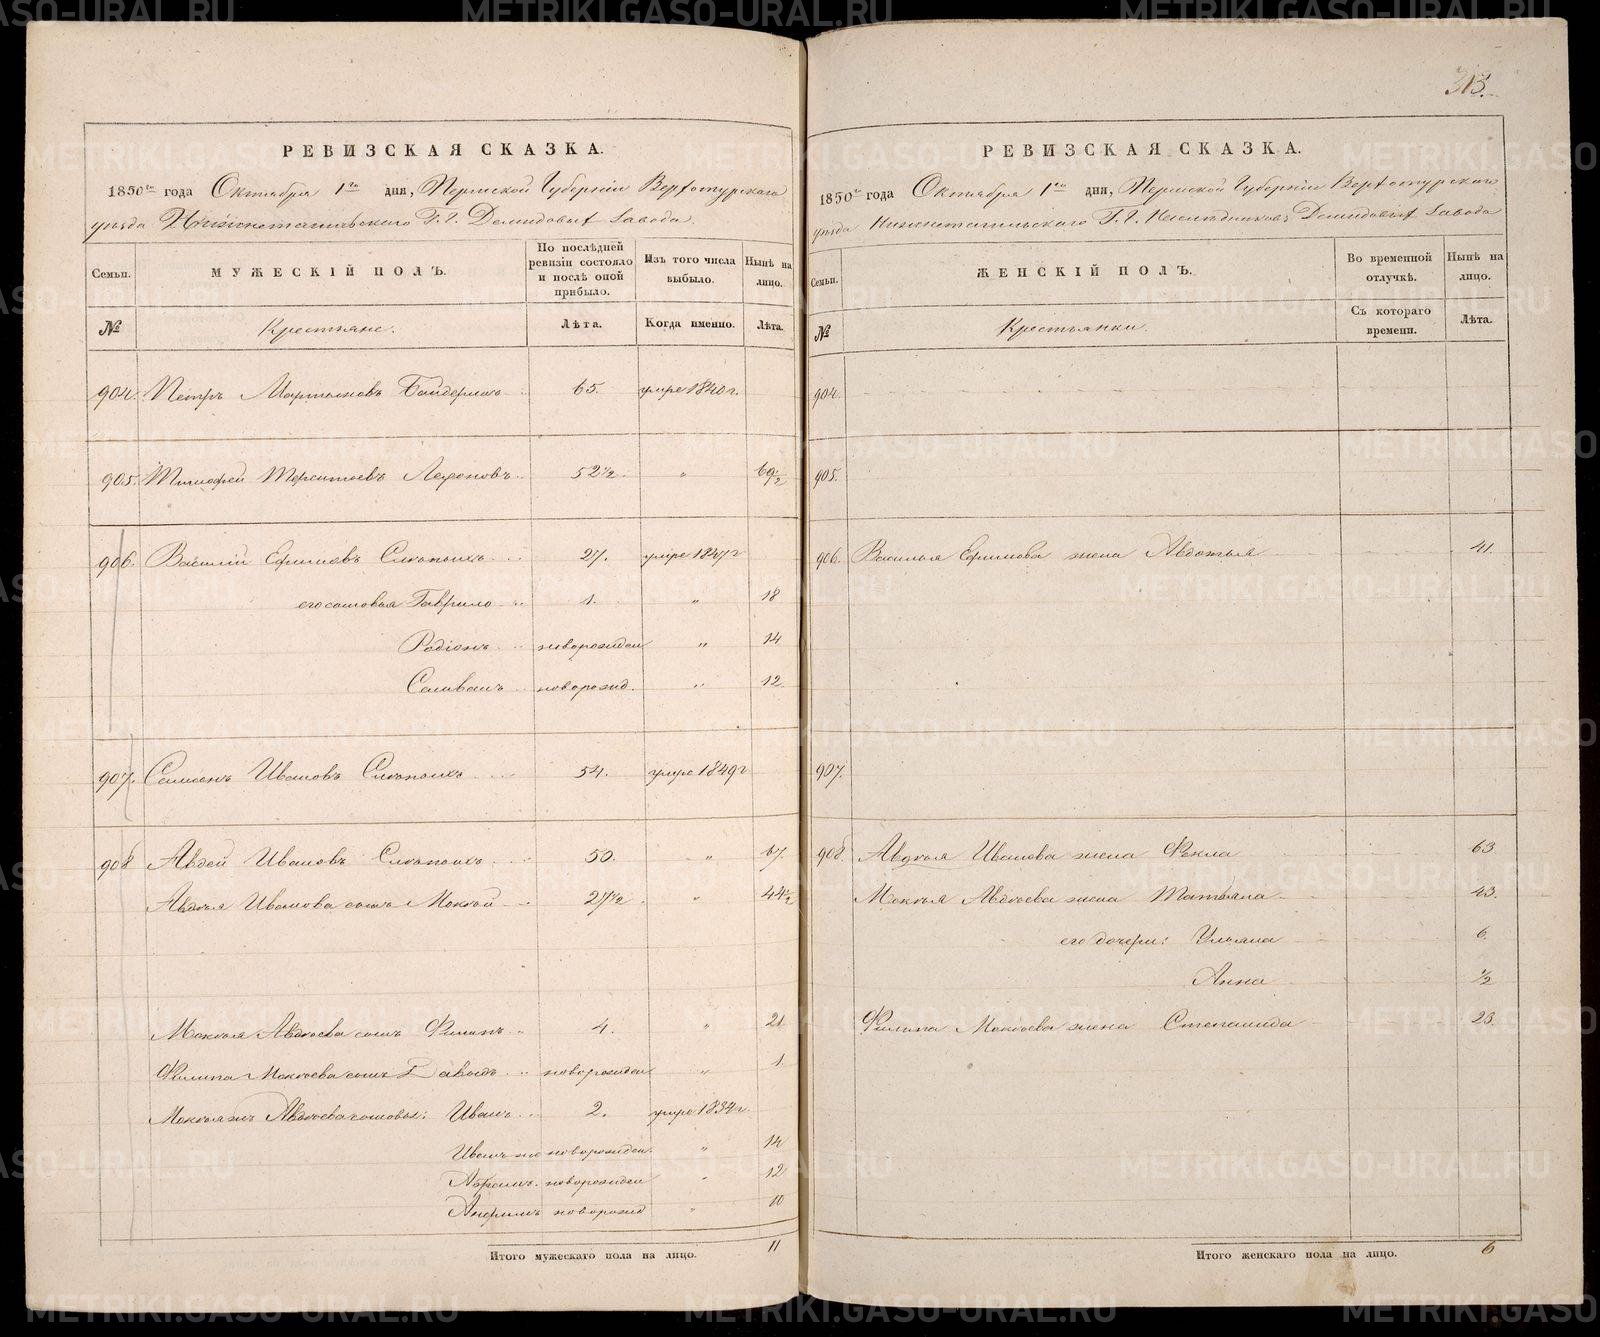 313.
РЕВИЗСКАЯ СКАЗКА.
1850го года Октября 1го дня, Пермской Губерніи Верхотурскаго
уезда Нижнетагильскаго Г.г. Демидовых завода.
Семьи. МУЖЕСКІЙ ПОЛЪ. По последней ревизіи состояло и после оной прибыло. Изъ того числа выбыло. Ныне на лицо.
№ Крестьяне. Лета. Когда именно. Лета.
904. Петръ Мартыновъ 65. умре 1840 г.
905. Тимофей Терентьевъ 52½. " 69½
906. Василій Ефимовъ 27. умре 1847 г
его сыновья Гаврило 1. " 18
Родіонъ новорожден " 14
Селиванъ новорожд. " 12
907. Семенъ Ивановъ 54. умре 1849 г
908 Авдей Ивановъ 50. " 67.
Авдея Иванова сынъ Мокей 27½ " 44½
Мокея Авдеева сынъ Филипъ 4. " 21
Филипа Мокеева сынъ Давыдъ новорожден " 1
Мокея жъ Авдеева сыновья: Иванъ 2. умре 1834 г.
Иванъ же новорожден. " 14
Абрамъ. новорожден " 12
Анфимъ новорожд " 10
Итого мужескаго пола на лицо. 11
РЕВИЗСКАЯ СКАЗКА.
1850го года Октября 1го дня, Пермской Губерніи Верхотурскаго
уезда Нижнетагильскаго Г.г. Наследниковъ Демидовых завода
Семьи. ЖЕНСКІЙ ПОЛЪ. Во временной отлучке. Ныне на лицо.
№ Крестьянки. Съ котораго времени. Лета.
904.
905.
906. Василья Ефимова жена Авдотья 41.
907.
908. Авдея Иванова жена Фекла 63
Мокея Авдеева жена Татьяна 43.
его дочери: Ульяна 6.
Анна ½
Филипа Мокеева жена Степанида 23.
Итого женскаго пола на лицо. 6
METRIKI.GASO-URAL.RU